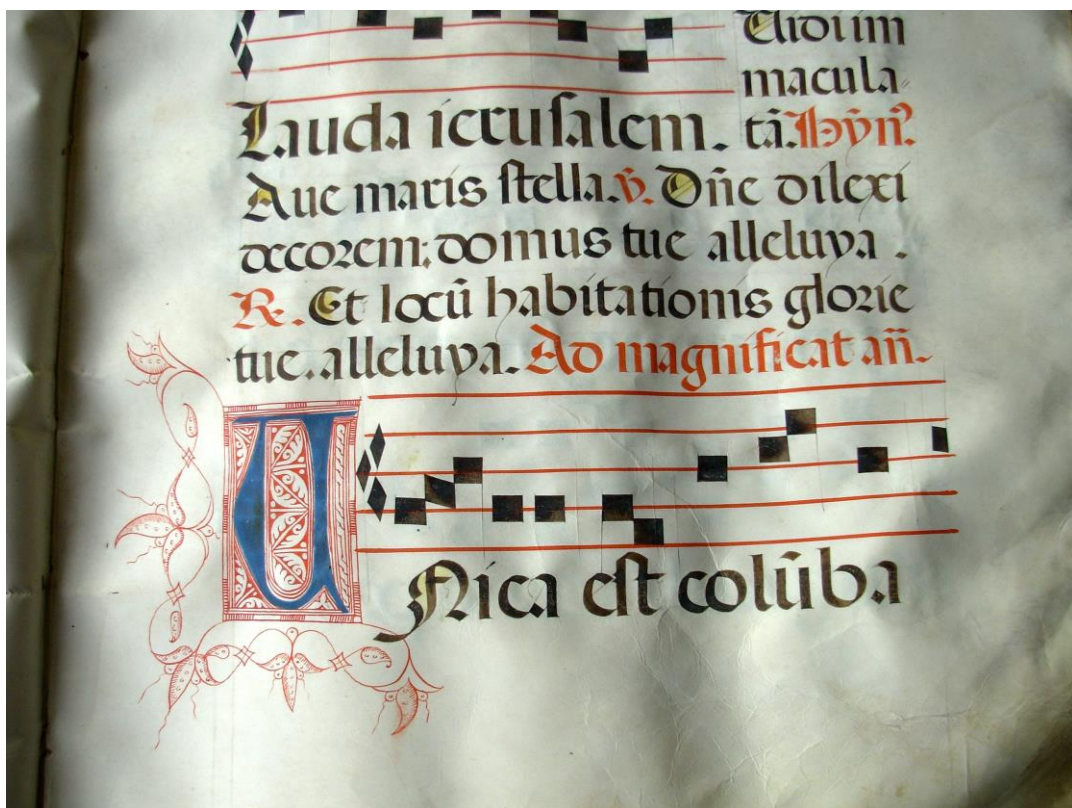 Uidi im
macula⸗
tā. Hȳn̄.
Lauda ierusalem.
Aue maris stella. v̄. Dn̄e dilexi
decorem; domus tue alleluya.
R. Et locū habitationis glorie
tue. alleluya. Ad magnificat an̄.
UNica est colūba